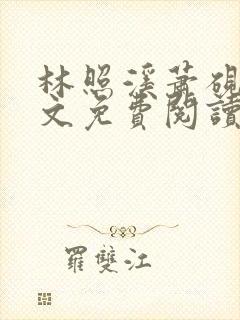 林照溪蕭硯
文免費閱讀
羅雙江